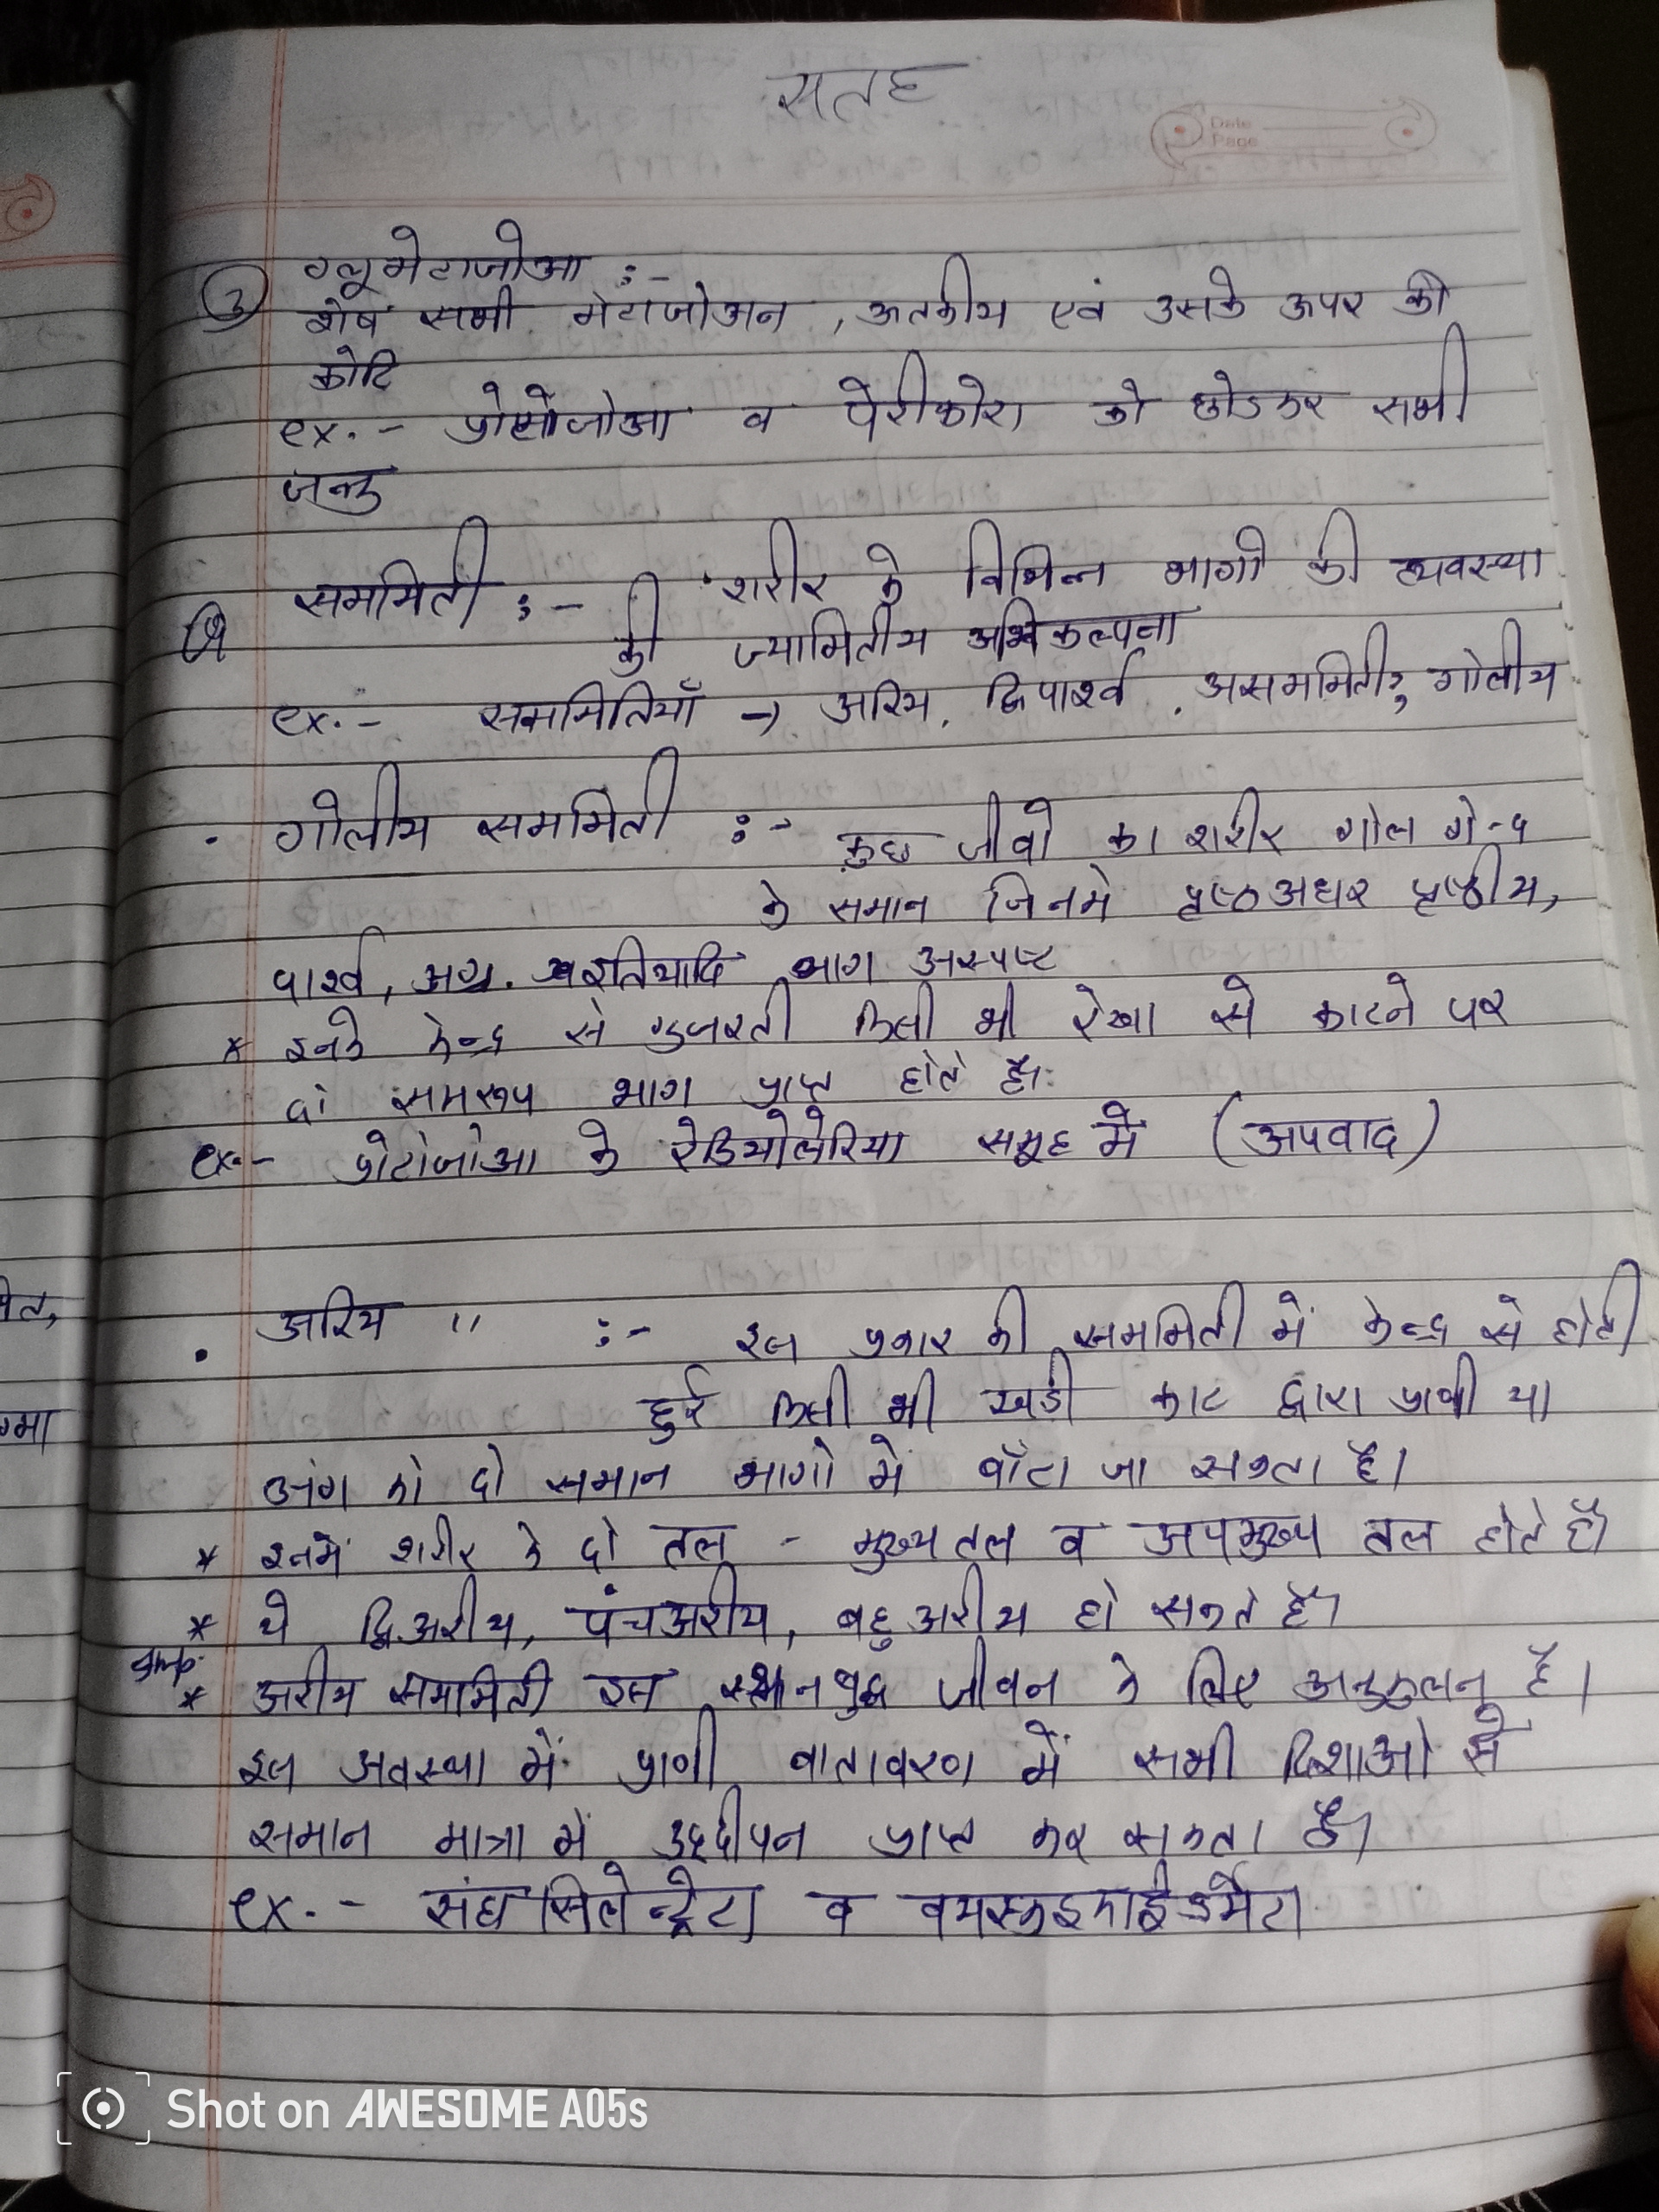 सतह
Date
Page
③ व्यूमेटाजोआ :-
शेष सभी मेटाजोअन, ऊतकीय एवं उसके ऊपर की
कोटि
ex.- प्रोटोजोआ व पेरीफोरा को छोडकर सभी
जन्तु
सममिती :- शरीर के विभिन्न भागो की व्यवस्था
की ज्यामितीय अभिकल्पना
ex.- सममितियाँ → अरिय, द्विपार्श्व, असममिती, गोलीय
• गोलीय सममिती :- कुछ जीवो का शरीर गोल गेन्द
के समान जिनमे पृष्ठ अधर पृष्ठीय,
पार्श्व, अग्र. इतियादि भाग अस्पष्ट
* इनके केन्द्र से गुजरती किसी भी रेखा से काटने पर
दो समरूप भाग प्राप्त होते है।
ex.- प्रोटोजोआ के रेडियोलेरिया समूह में (अपवाद)
• अरिय " :- इस प्रकार की सममिती में केन्द्र से होती
हुई किसी भी खडी काट द्वारा प्राणी या
अंग को दो समान भागो में बाँटा जा सकता है।
* इनमें शरीर के दो तल - मुख्य तल व अपमुख्य तल होते है।
* ये द्विअरीय, पंचअरीय, बहुअरीय हो सकते है।
Imp.
* अरीय सममिती इस स्थानबद्ध जीवन के लिए अनुकूलन है।
इस अवस्था में प्राणी वातावरण में सभी दिशाओ से
समान मात्रा में उद्दीपन प्राप्त कर सकता है।
ex.- संघ सिलेन्ट्रेटा व वयस्क इकाईडर्मेटा
Shot on AWESOME A05s